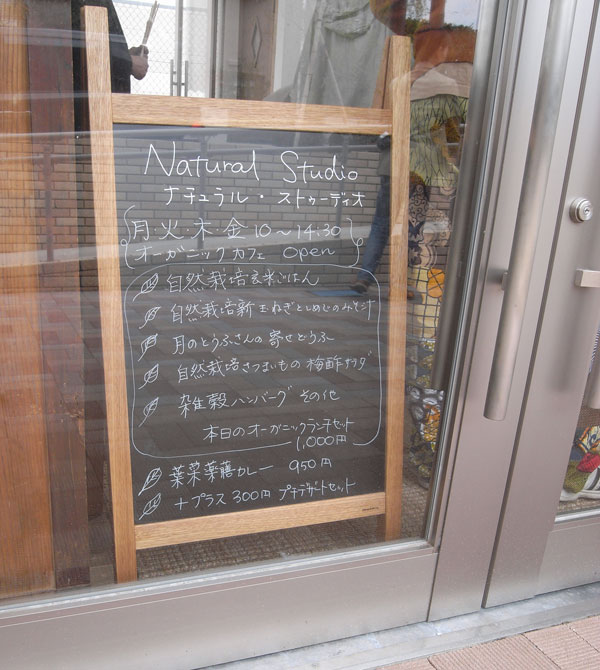 Natural Studio
ナチュラル・ストゥーディオ
月・火・木・金 10～14:30
オーガニックカフェ open
自然栽培玄米ごはん
自然栽培新玉ねぎとしめじのみそ汁
月のとうふさんの寄せどうふ
自然栽培さつまいもの梅酢サラダ
雑穀ハンバーグ その他
本日のオーガニックランチセット
1,000円
葉菜薬膳カレー 950円
+プラス300円 プチデザートセット